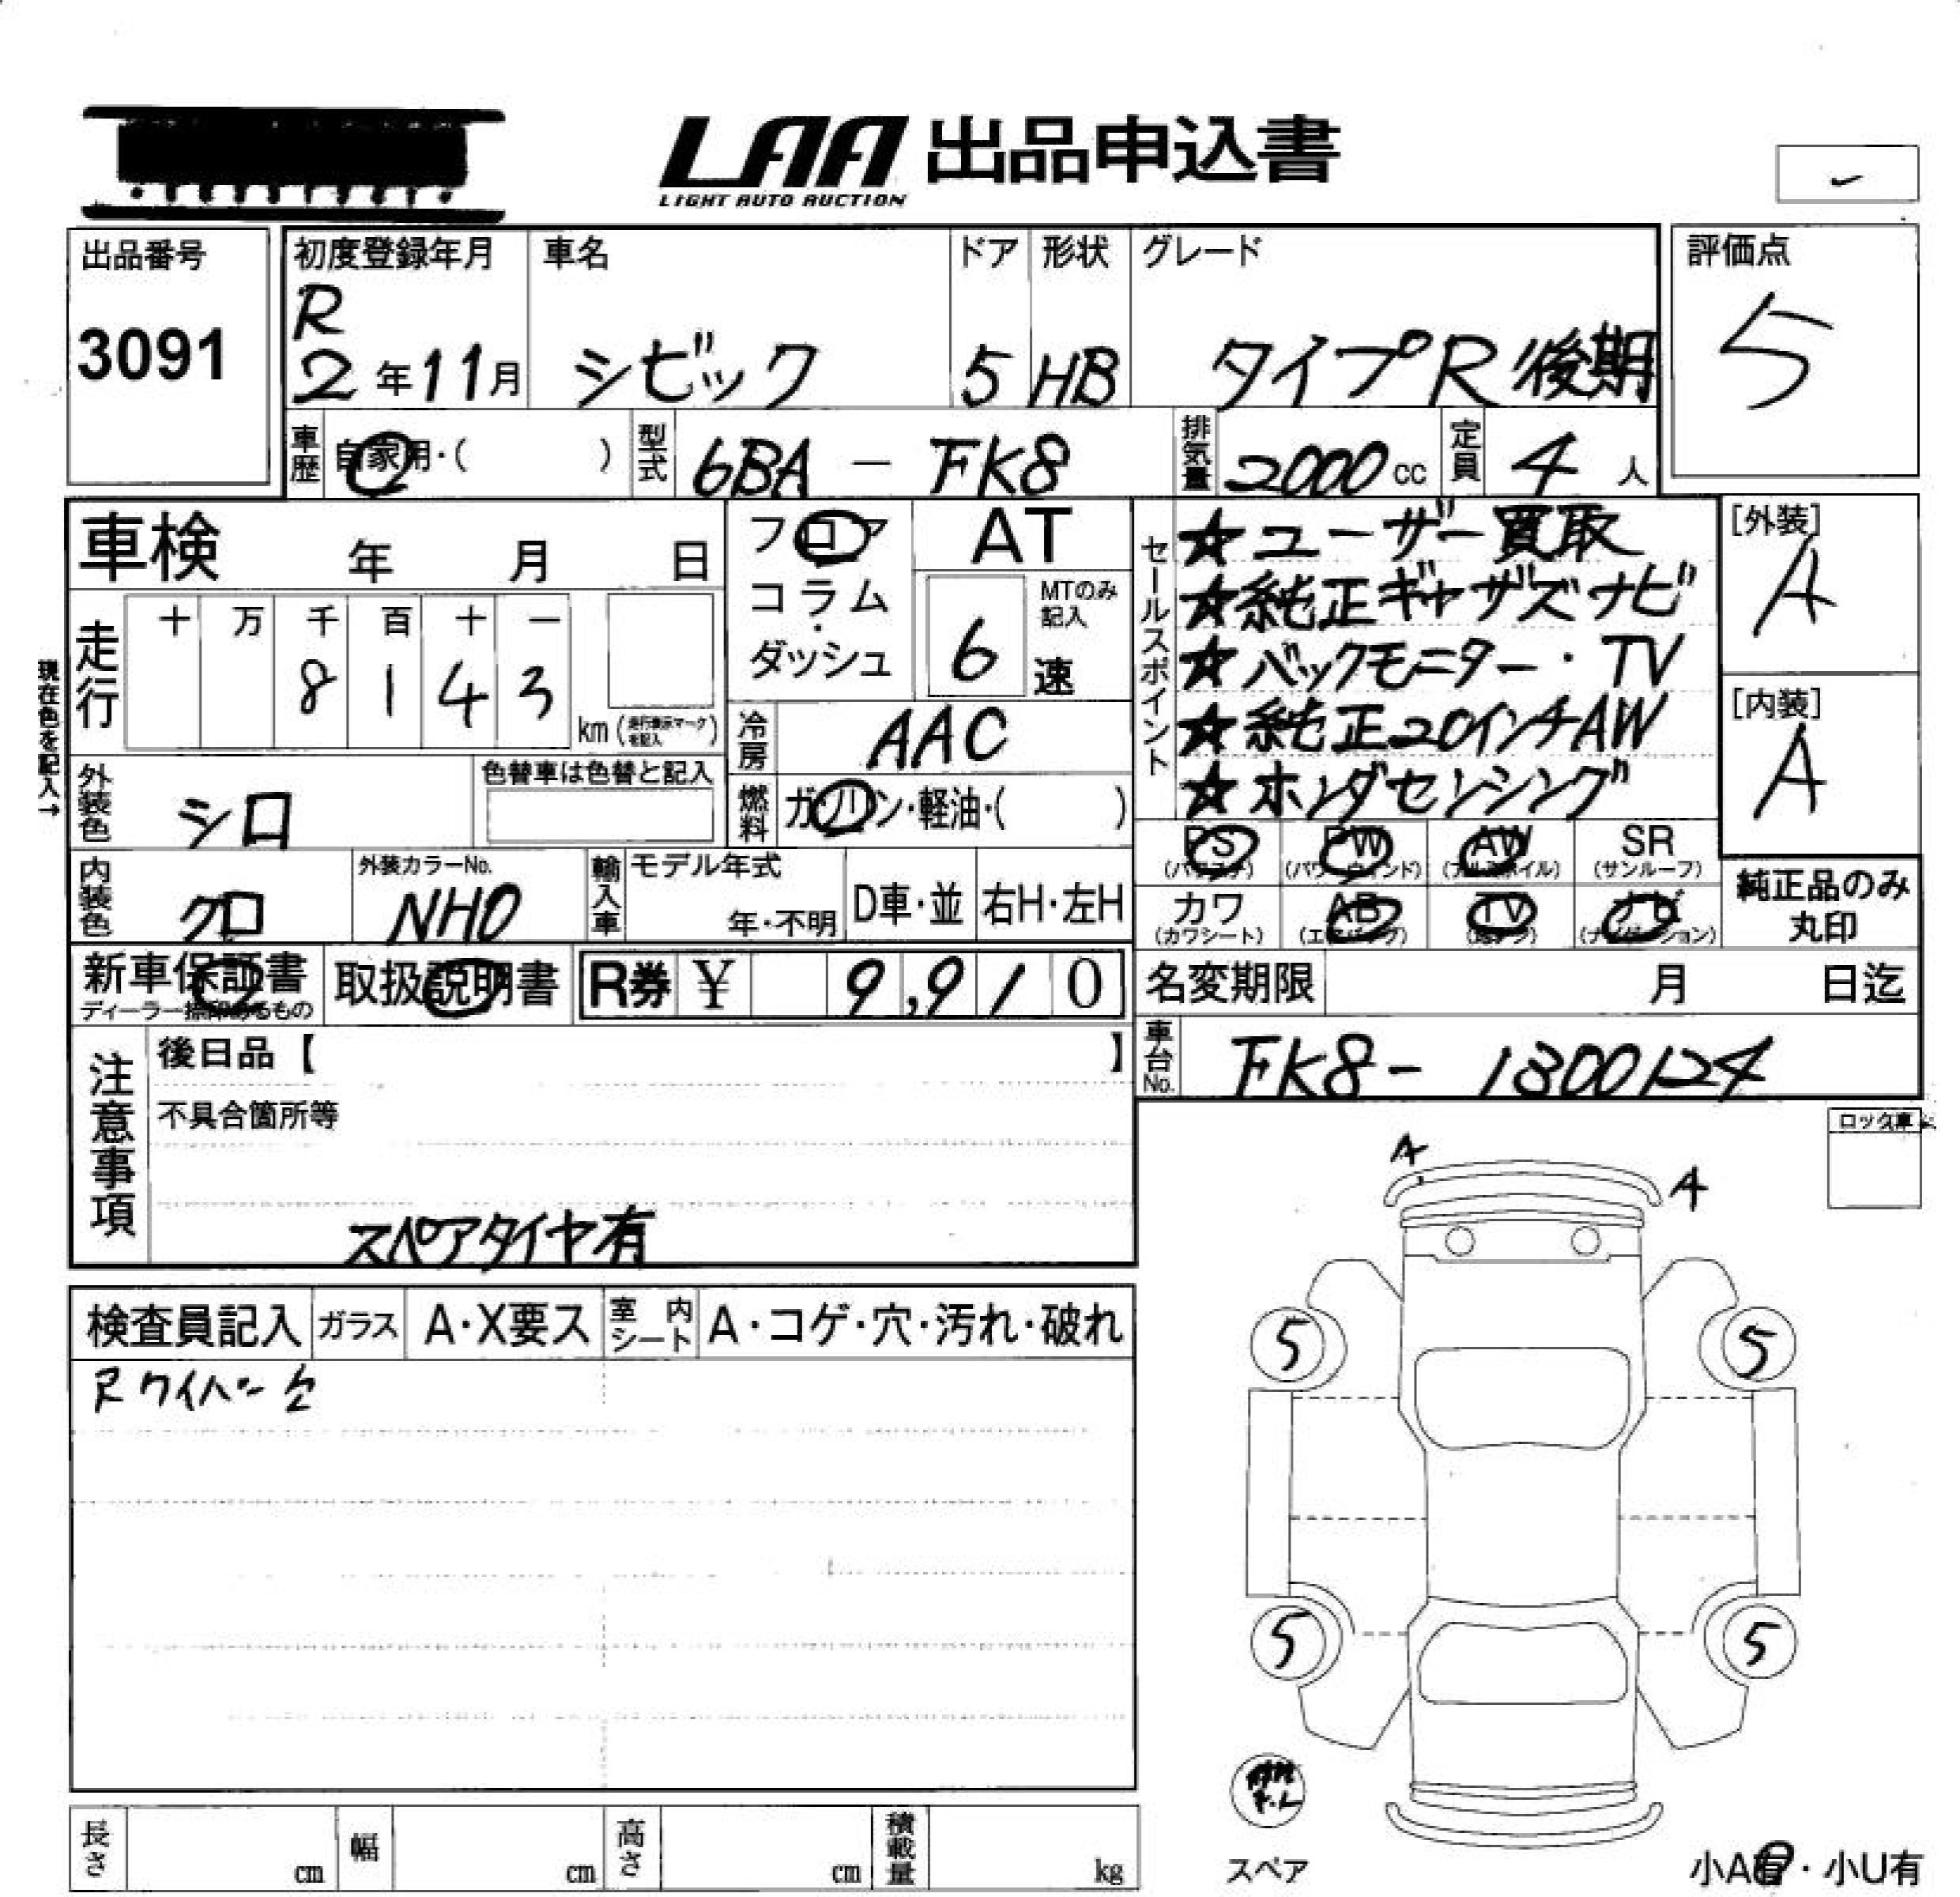 LAA 出品申込書
LIGHT AUTO AUCTION
出品番号
3091
初度登録年月
R
2年11月
車名
シビック
ドア
5
形状
HB
グレード
タイプR 後期
評価点
5
車歴
自家用・( )
型式
6BA - FK8
排気量
2000 cc
定員
4 人
車検 年 月 日
フロア
コラム
・
ダッシュ
AT
6
MTのみ
記入
速
現在色を記入→
走行
十 万 千 百 十 一
8 1 4 3
km (走行表示マークを記入)
冷房
AAC
外装色
シロ
色替車は色替と記入
燃料
ガソリン・軽油・( )
内装色
クロ
外装カラーNo.
NH0
輸入車
モデル年式
年・不明
D車・並
右H・左H
セールスポイント
☆ユーザー買取
☆純正ギャザズナビ
☆バックモニター・TV
☆純正20インチAW
☆ホンダセンシング
[外装]
A
[内装]
A
PS
(パワステ)
PW
(パワーウインド)
AW
(アルミホイル)
SR
(サンルーフ)
カワ
(カワシート)
AB
(エアバッグ)
TV
ナビ
(ナビゲーション)
純正品のみ
丸印
新車保証書
ディーラー捺印あるもの
取扱説明書
R券 ¥ 9,910
名変期限 月 日迄
車台No.
FK8- 1300124
注意事項
後日品【 】
不具合箇所等
スペアタイヤ有
ロック車
A
A
検査員記入
ガラス
A・X要ス
室内
シート
A・コゲ・穴・汚れ・破れ
5
5
5
5
スペア
小A有・小U有
長さ cm
幅 cm
高さ cm
積載量 kg